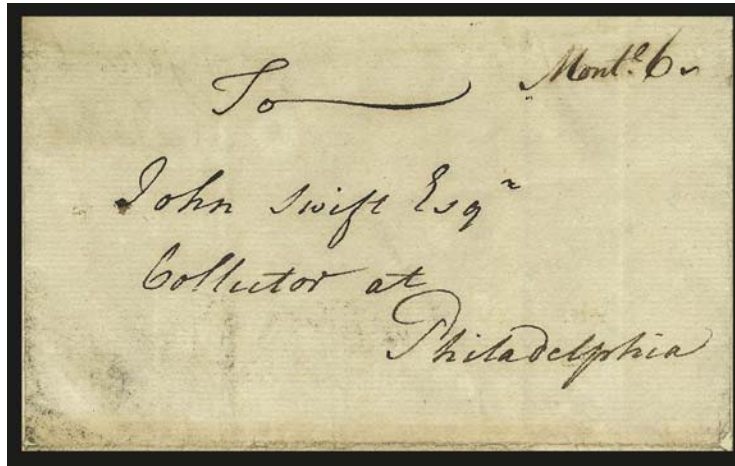 Montl. 6
To
John Swift Esqr
Collector at
Philadelphia